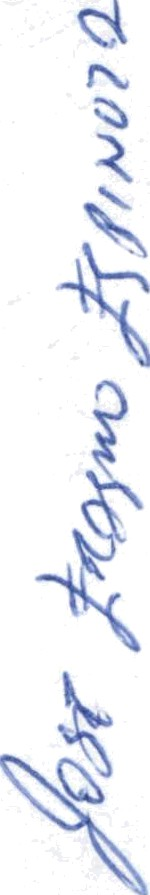 José Erasmo Espinoza